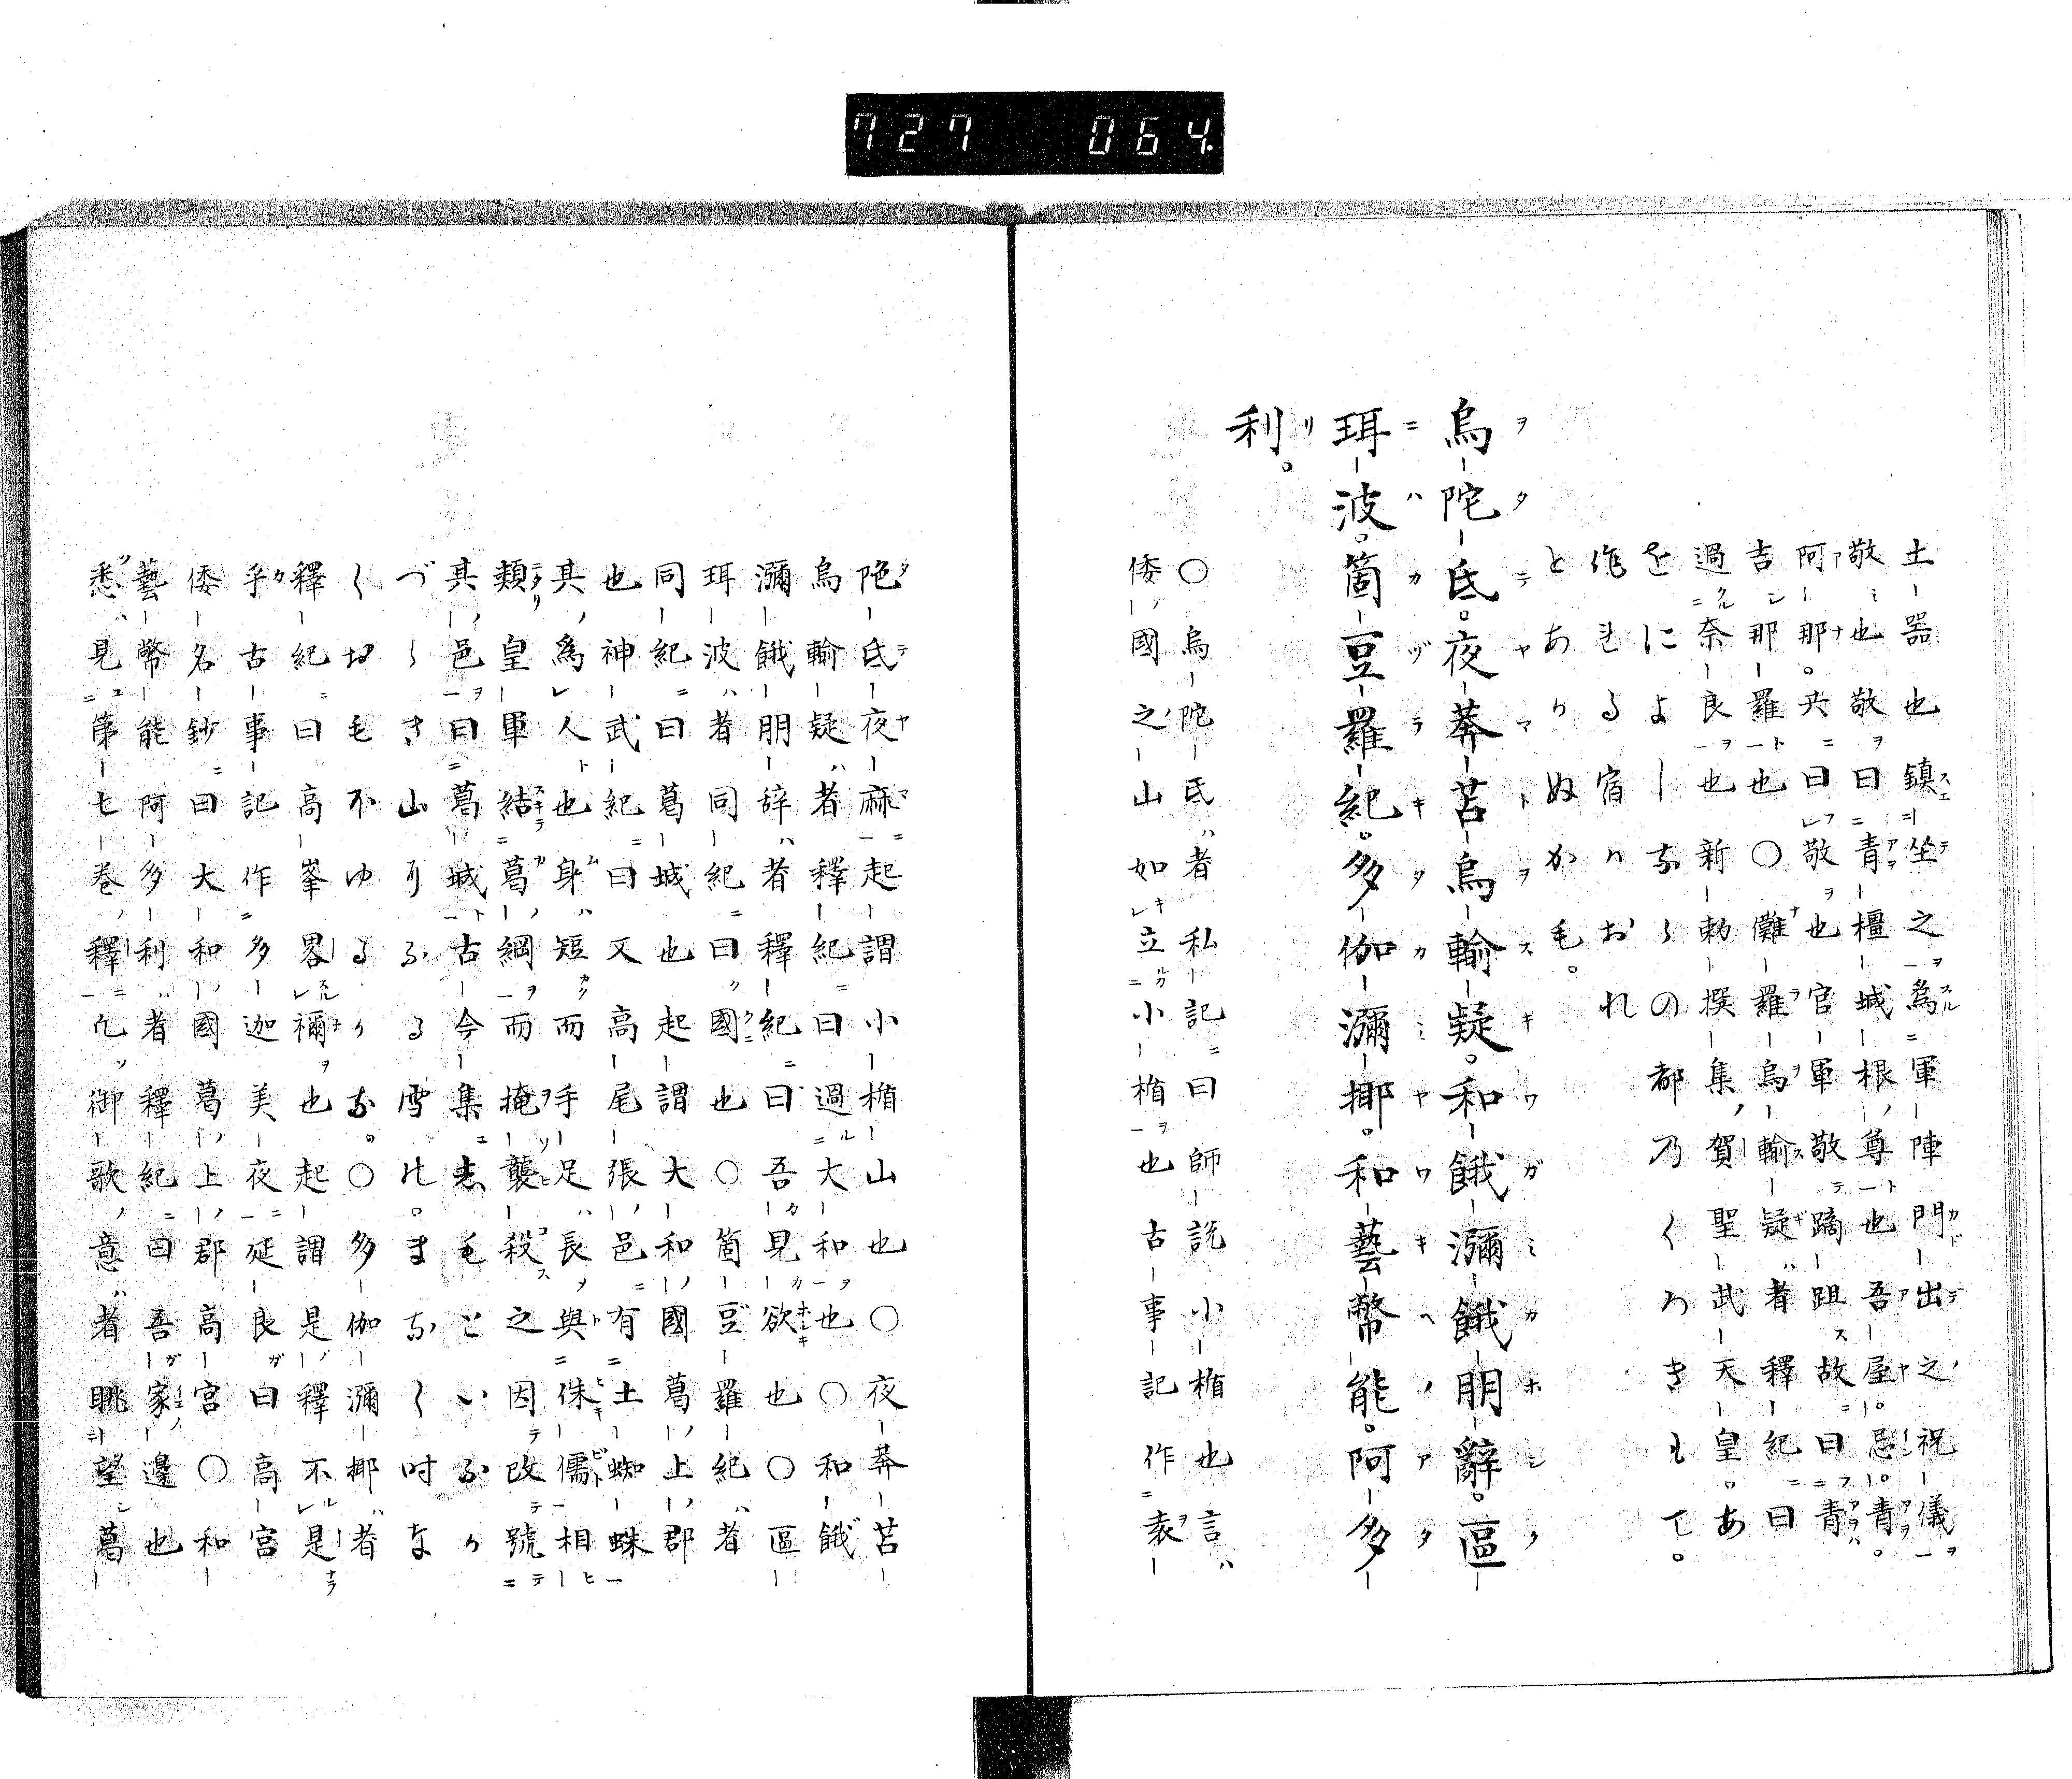 727 064.
土器也鎮坐之為軍陣門出之祝儀
敬也敬曰青橿城根尊也吾屋忌青
阿那共曰敬也官軍敬蹢跙故曰青
吉那羅也〇儺羅烏輸疑者釋紀曰
過奈良也新勅撰集賀聖武天皇。あ
をによしならの都乃くろきもて。
作れる宿ハおれ
とありぬかも。
烏陀氐。夜莾苫烏輸疑。和餓瀰餓朋辭。區
珥波。箇豆羅紀。多伽瀰揶。和藝幣能。阿多
利。
〇烏陀氐者私記曰師説小楯也言
倭國之山如立小楯也古事記作袁
陀氐夜麻起謂小楯山也〇夜莾苫
烏輸疑者釋紀曰過大和也〇和餓
瀰餓朋辞者釋紀曰吾見欲也〇區
珥波者同紀曰國也〇箇豆羅紀者
同紀曰葛城也起謂大和國葛上郡
也神武紀曰又高尾張邑有土蜘蛛
其為人也身短而手足長與侏儒相
類皇軍結葛綱而掩襲殺之因改號
其邑曰葛城古今集志毛といふか
づらき山にふる雪は。まなく時な
く于毛不ゆるかな。〇多伽瀰揶者
釋紀曰高峯畧禰也起謂是釋不是
乎古事記作多迦美夜延良曰高宮
倭名鈔曰大和國葛上郡高宮〇和
藝幣能阿多利者釋紀曰吾家邊也
悉見第七巻釋凡御歌意者眺望葛